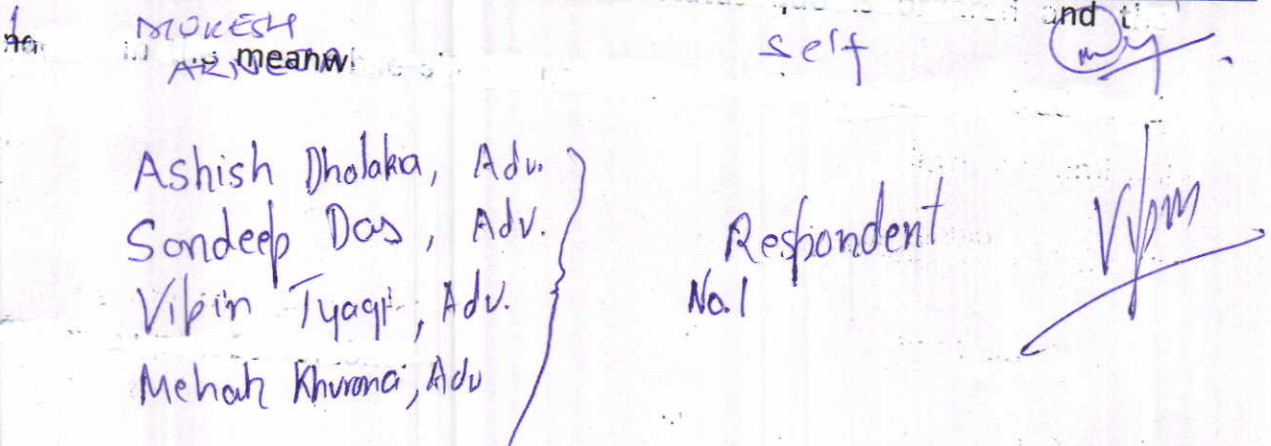 MUKESH self and t
in meanwi
Ashish Dholakia, Adv.
Sandeep Das, Adv.
Vipin Tyagi, Adv.
Mehak Khurana, Adv
Respondent
No.1
Vipin